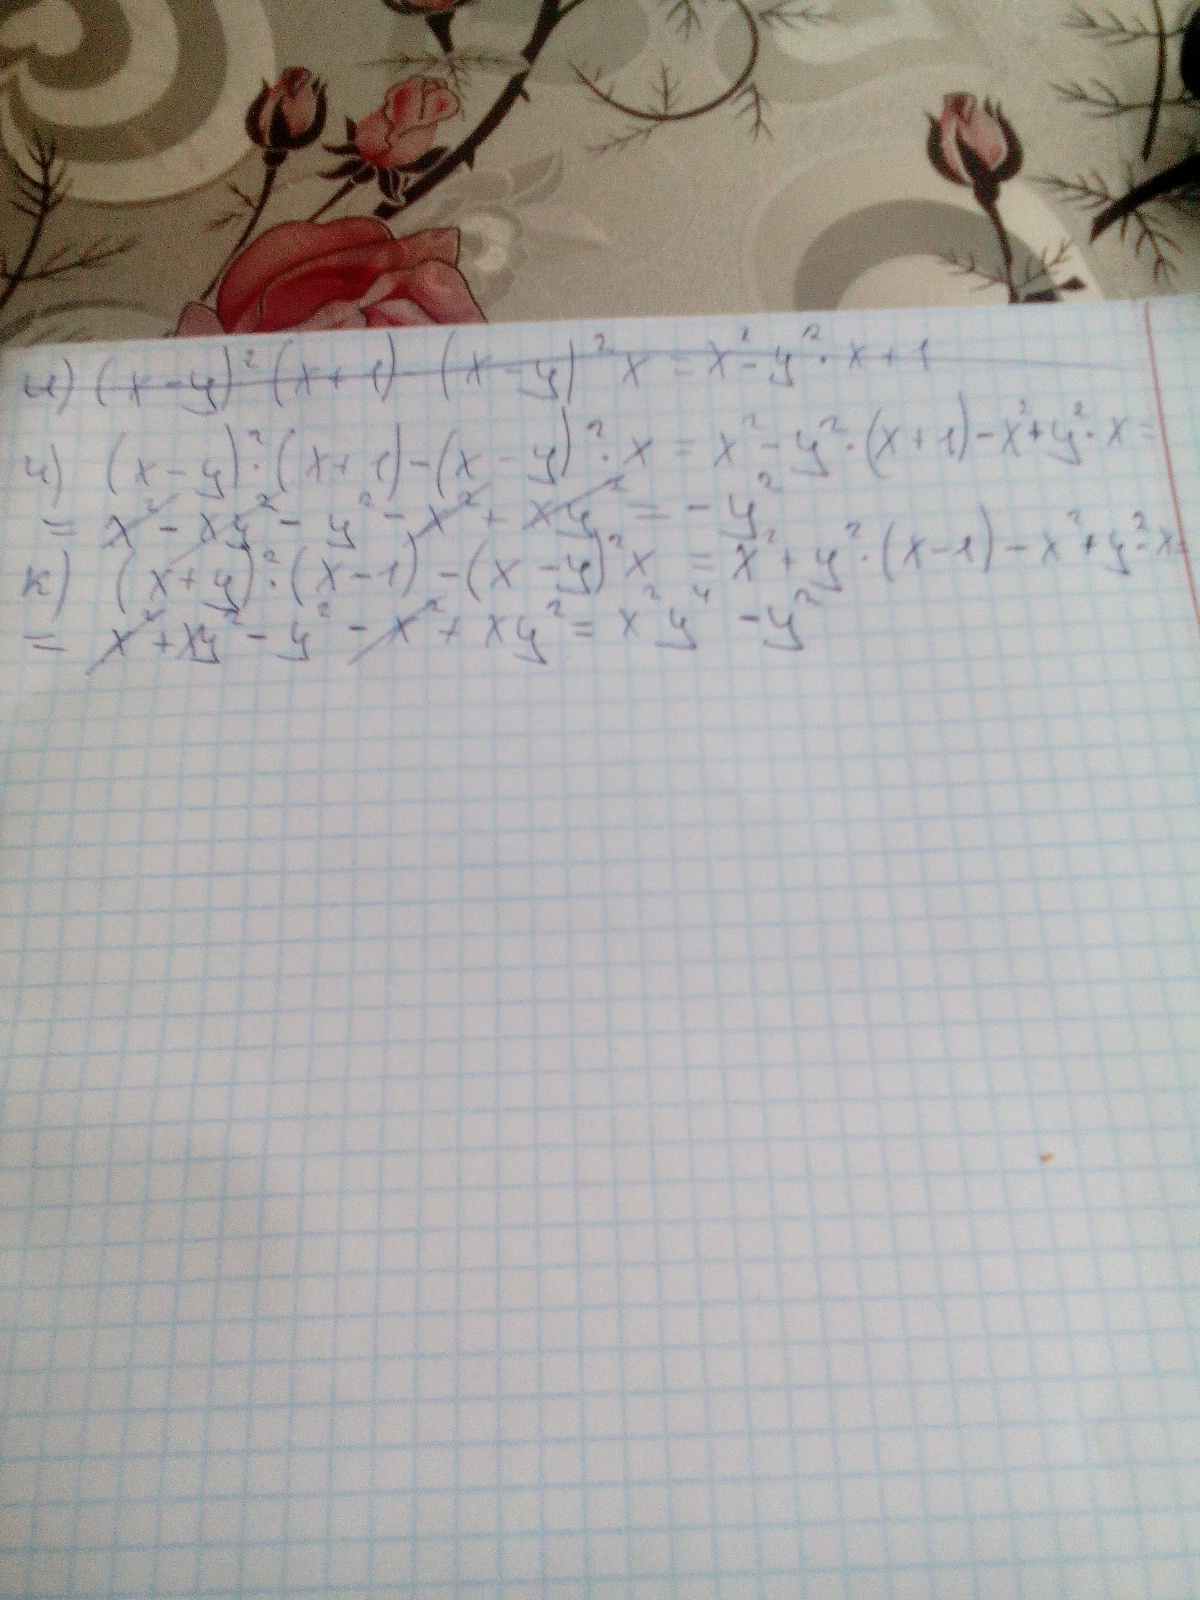 и) (x-y)²(x+1)-(x-y)²x = x²-y²·x+1
и) (x-y)²·(x+1)-(x-y)²·x = x²-y²·(x+1)-x²+y²·x =
= x²-xy²-y²-x²+xy² = -y²
к) (x+y)²·(x-1)-(x-y)²x = x²+y²·(x-1)-x²+y²·x=
= x²+xy²-y²-x²+xy² = x²y⁴-y²